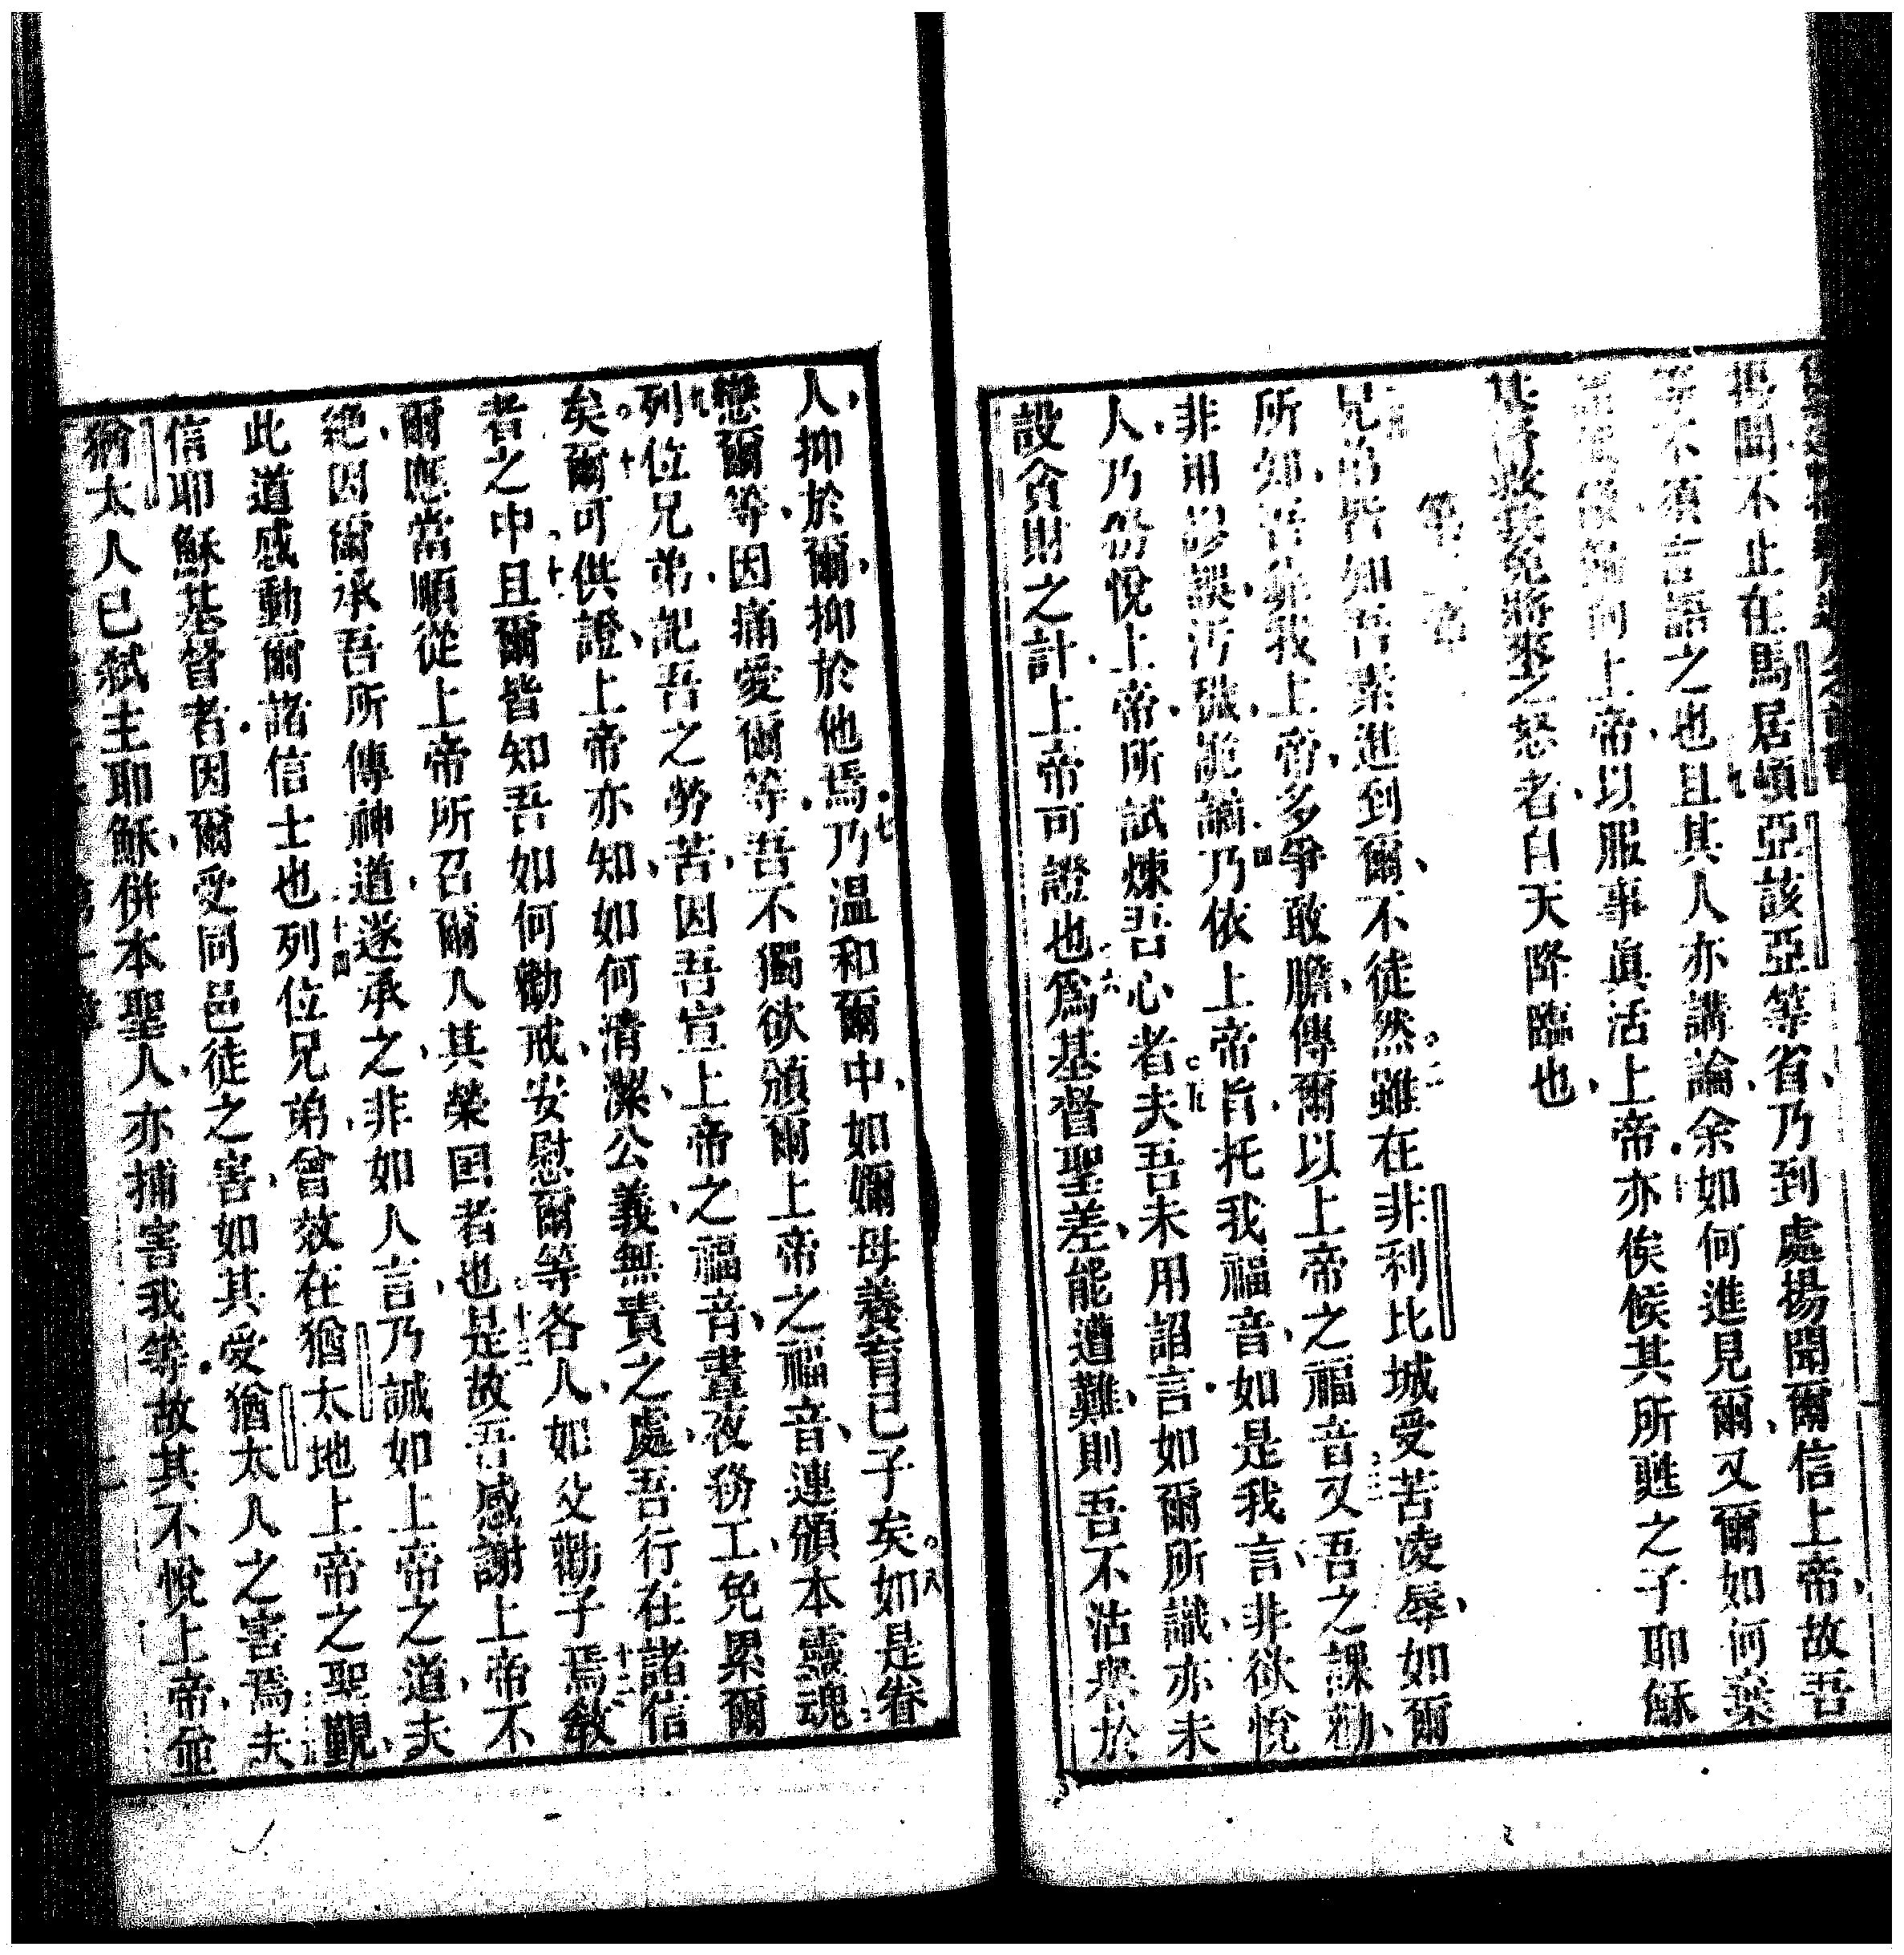 揚聞不止在馬居頓亞該亞等省乃到處揚聞爾信上帝故吾
等不須言語之也且其人亦講論余如何進見爾又爾如何棄
歸向上帝以服事眞活上帝亦俟候其所甦之子耶穌
其將救我免將來之怒者自天降臨也
第二章
兄弟皆知吾業進到爾不徒然二雖在非利比城受苦凌辱如爾
所知吾靠我上帝多爭敢膽傳爾以上帝之福音三又吾之課勸
非用謬誤汚穢詭譎四乃依上帝旨托我福音如是我言非欲悅
人乃務悅上帝所試煉吾心者五夫吾未用諂言如爾所識亦未
設貪財之計上帝可證也六爲基督聖差能遭難則吾不沽譽於
人抑於爾抑於他焉七乃温和爾中如嬭母養育己子矣八如是眷
戀爾等因痛愛爾等吾不獨欲頒爾上帝之福音連頒本靈魂
九列位兄弟記吾之勞苦因吾宣上帝之福音晝夜務工免累爾
矣十爾可供證上帝亦知如何清潔公義無責之處吾行在諸信
者之中十一且爾皆知吾如何勸戒安慰爾等各人如父勸子焉十二敎
爾應當順從上帝所召爾入其榮国者也十三是故吾感謝上帝不
絶因爾承吾所傳神道遂承之非如人言乃誠如上帝之道夫
此道感動爾諸信士也十四列位兄弟曾效在猶太地上帝之聖覲
信耶穌基督者因爾受同邑徒之害如其受猶太人之害焉十五夫
猶太人已弑主耶穌併本聖人亦捕害我等故其不悅上帝並